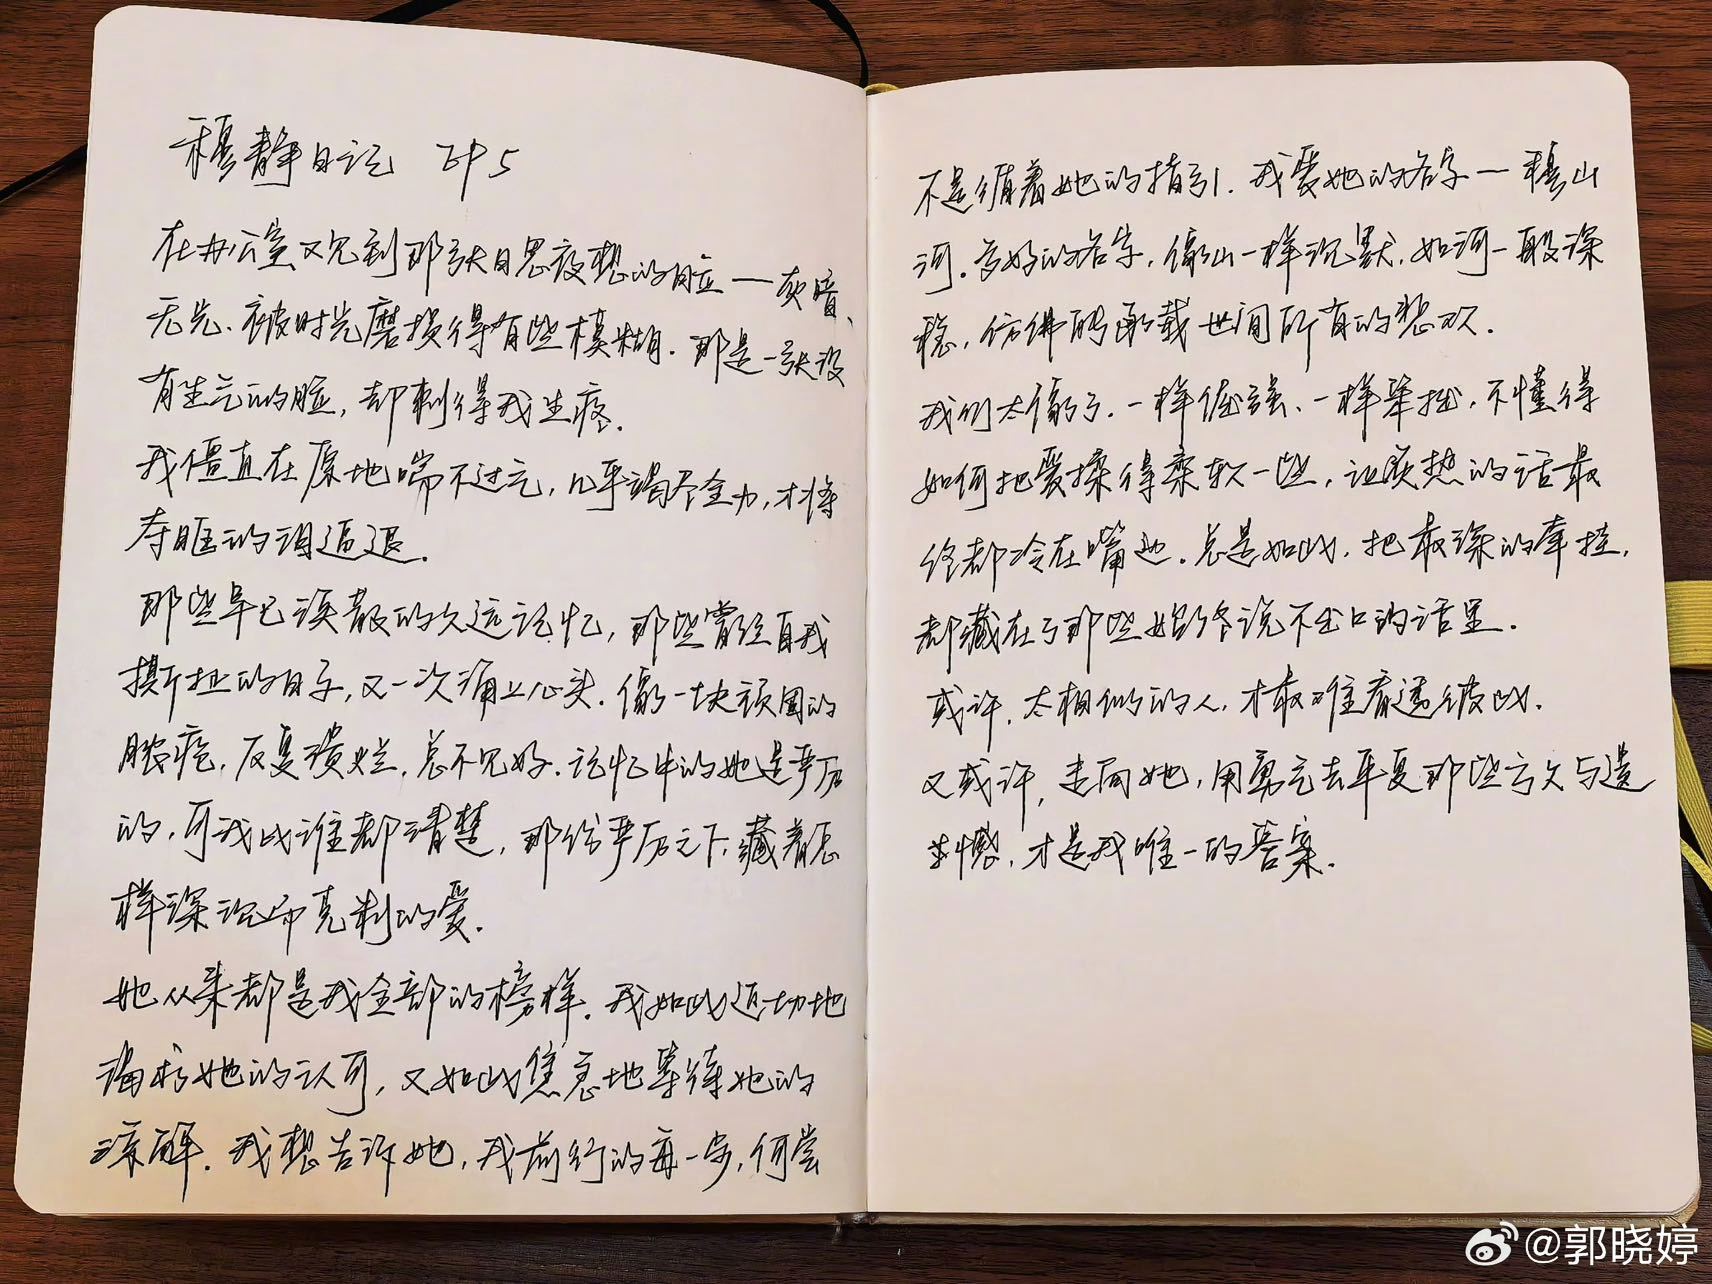 穆静日记 EP5
在办公室又见到那张日思夜想的脸——灰暗、
无光、被时光磨损得有些模糊. 那是一张没
有生气的脸, 却刺得我生疼.
我僵直在原地喘不过气, 几乎竭尽全力, 才将
夺眶的泪逼退.
那些早已涣散的久远记忆, 那些曾经自我
撕扯的日子, 又一次涌上心头. 像一块顽固的
脓疮, 反复溃烂, 总不见好. 记忆中的她是严厉
的, 可我比谁都清楚, 那份严厉之下, 藏着怎
样深沉而克制的爱.
她从来都是我全部的榜样. 我如此迫切地
渴求她的认可, 又如此焦急地等待她的
谅解. 我想告诉她, 我前行的每一步, 何尝
不是循着她的指引. 我爱她的名字——穆山
河. 多好的名字, 像山一样沉默, 如河一般深
稳, 仿佛能承载世间所有的悲欢.
我们太像了. 一样倔强、一样笨拙, 不懂得
如何把爱揉得柔软一些, 让炽热的话最
终都冷在嘴边. 总是如此, 把最深的牵挂,
都藏在了那些始终说不出口的话里.
或许, 太相似的人, 才最难看透彼此.
又或许, 走向她, 用勇气去平复那些亏欠与遗
憾, 才是我唯一的答案.
@郭晓婷